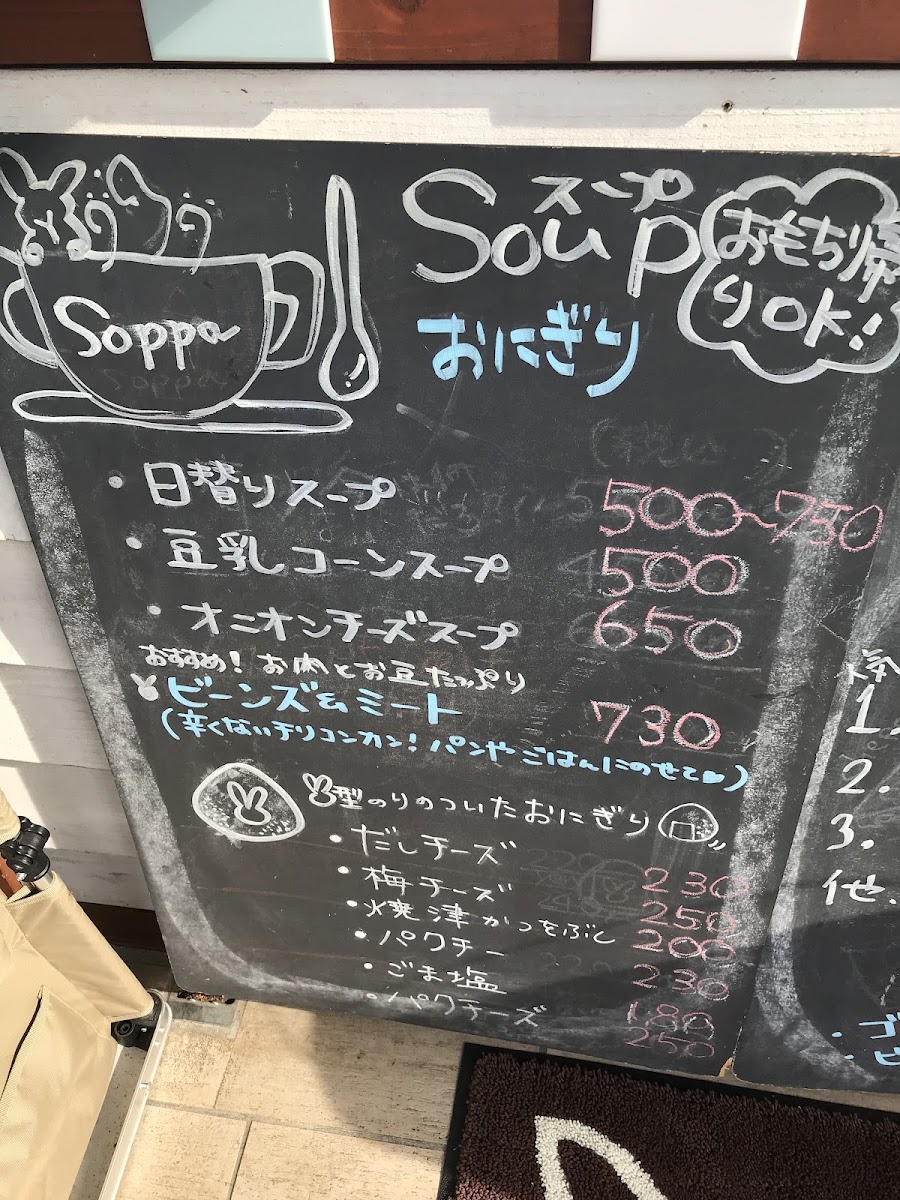 Soppa
スープ
Soup
おもちり帰
りOK!
おにぎり
・日替りスープ 500〜750
・豆乳コーンスープ 500
・オニオンチーズスープ 650
おすすめ! お肉とお豆たっぷり
ビーンズ&ミート 730
(辛くないチリコンカン! パンやごはんにのせて)
型のりのついたおにぎり
・だしチーズ 230
・梅チーズ 250
・焼津かつをぶし 200
・パクチー 230
・ごま塩 180
・パクチーズ 250
1.
2.
3.
他.